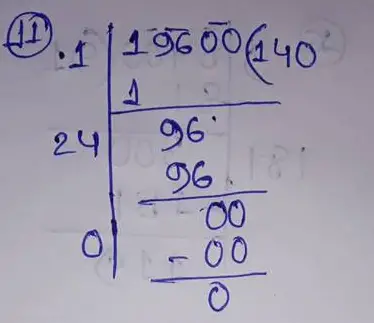 11
.1 19600(140
1
24 96
96
00
0 - 00
0